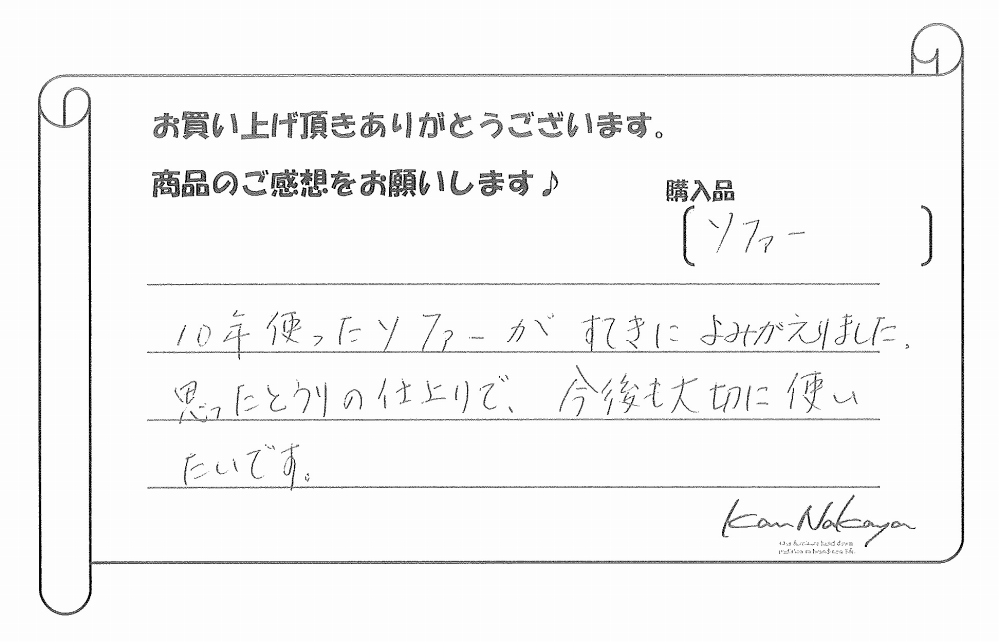 お買い上げ頂きありがとうございます。
商品のご感想をお願いします♪
購入品
ソファー
10年使ったソファーがすてきによみがえりました。
思ったとうりの仕上りで、今後も大切に使い
たいです。
Kan Nakaya